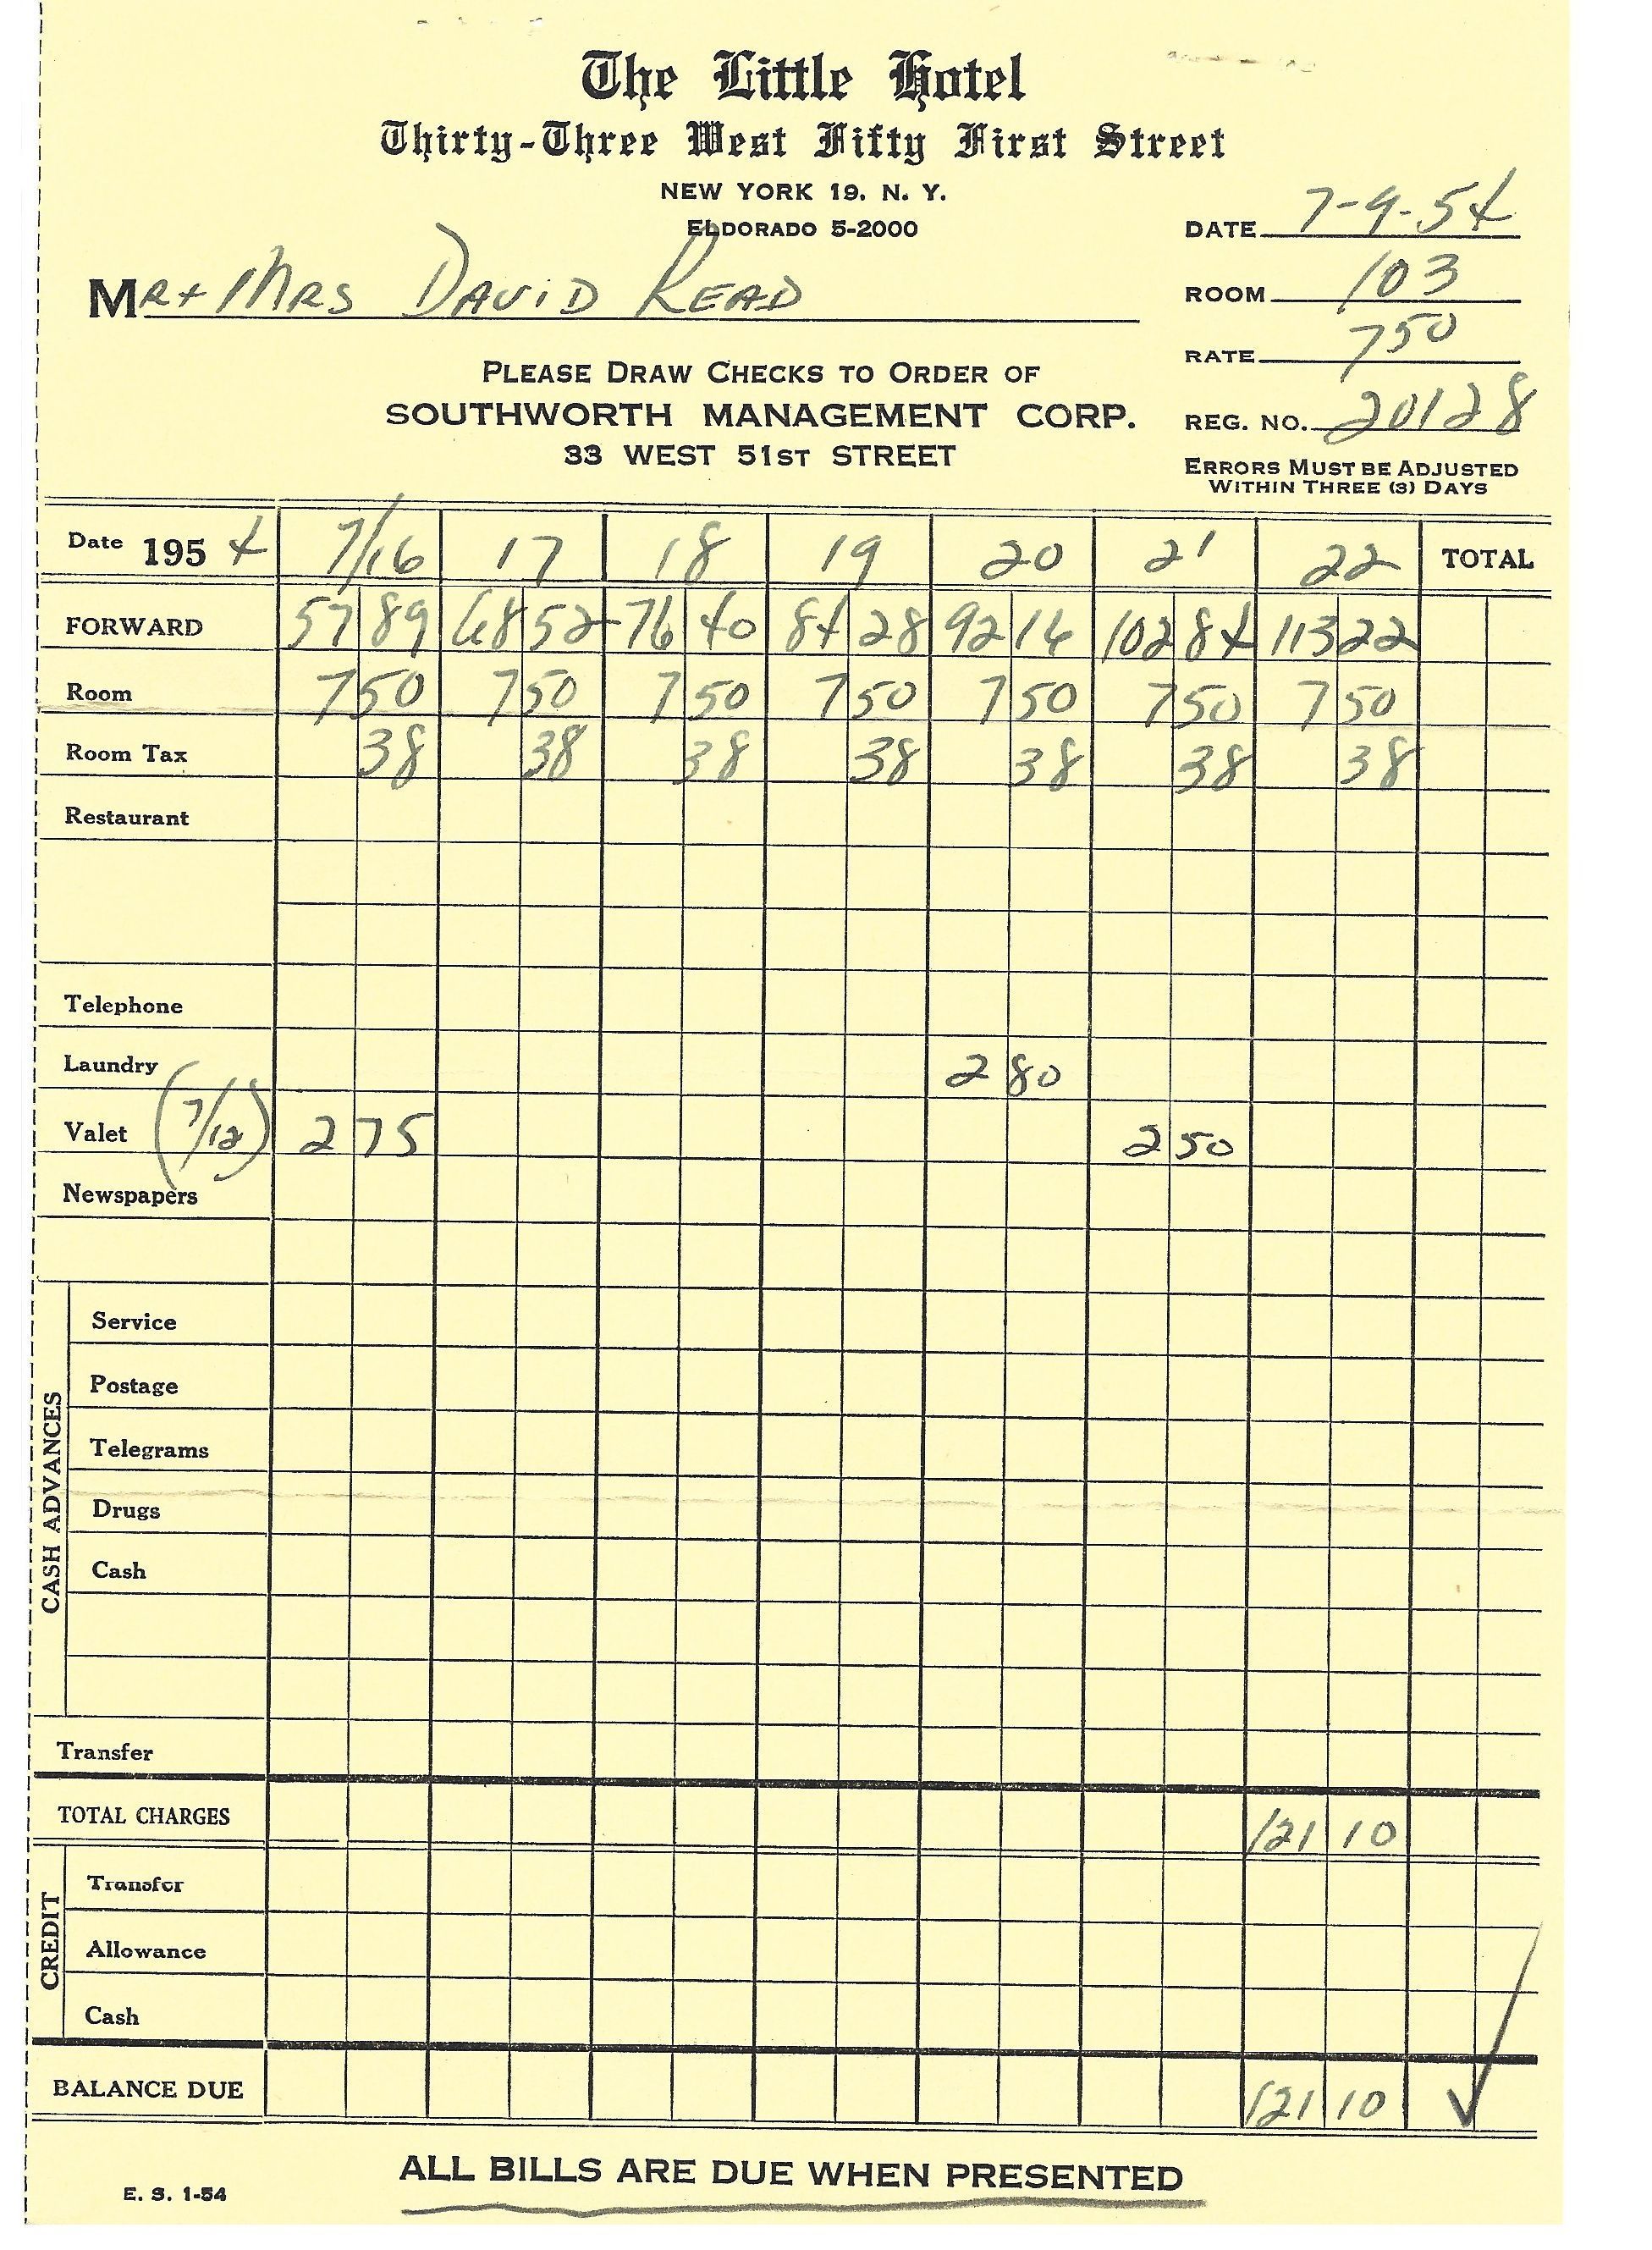 The Little Hotel
Thirty-Three West Fifty First Street
NEW YORK 19. N. Y.
ELDORADO 5-2000
DATE 7-9-54
MR + MRS DAVID READ
ROOM 103
RATE 750
PLEASE DRAW CHECKS TO ORDER OF
SOUTHWORTH MANAGEMENT CORP.
33 WEST 51ST STREET
REG. NO. 20128
ERRORS MUST BE ADJUSTED
WITHIN THREE (3) DAYS
Date 1954 7/16 17 18 19 20 21 22 TOTAL
FORWARD 57 89 68 52 76 40 84 28 92 16 102 84 113 22
Room 7 50 7 50 7 50 7 50 7 50 7 50 7 50
Room Tax 38 38 38 38 38 38 38
Restaurant
Telephone
Laundry 2 80
Valet (7/12) 2 75 2 50
Newspapers
CASH ADVANCES
Service
Postage
Telegrams
Drugs
Cash
Transfer
TOTAL CHARGES 121 10
CREDIT
Transfer
Allowance
Cash
BALANCE DUE 121 10 ✓
ALL BILLS ARE DUE WHEN PRESENTED
E. S. 1-54